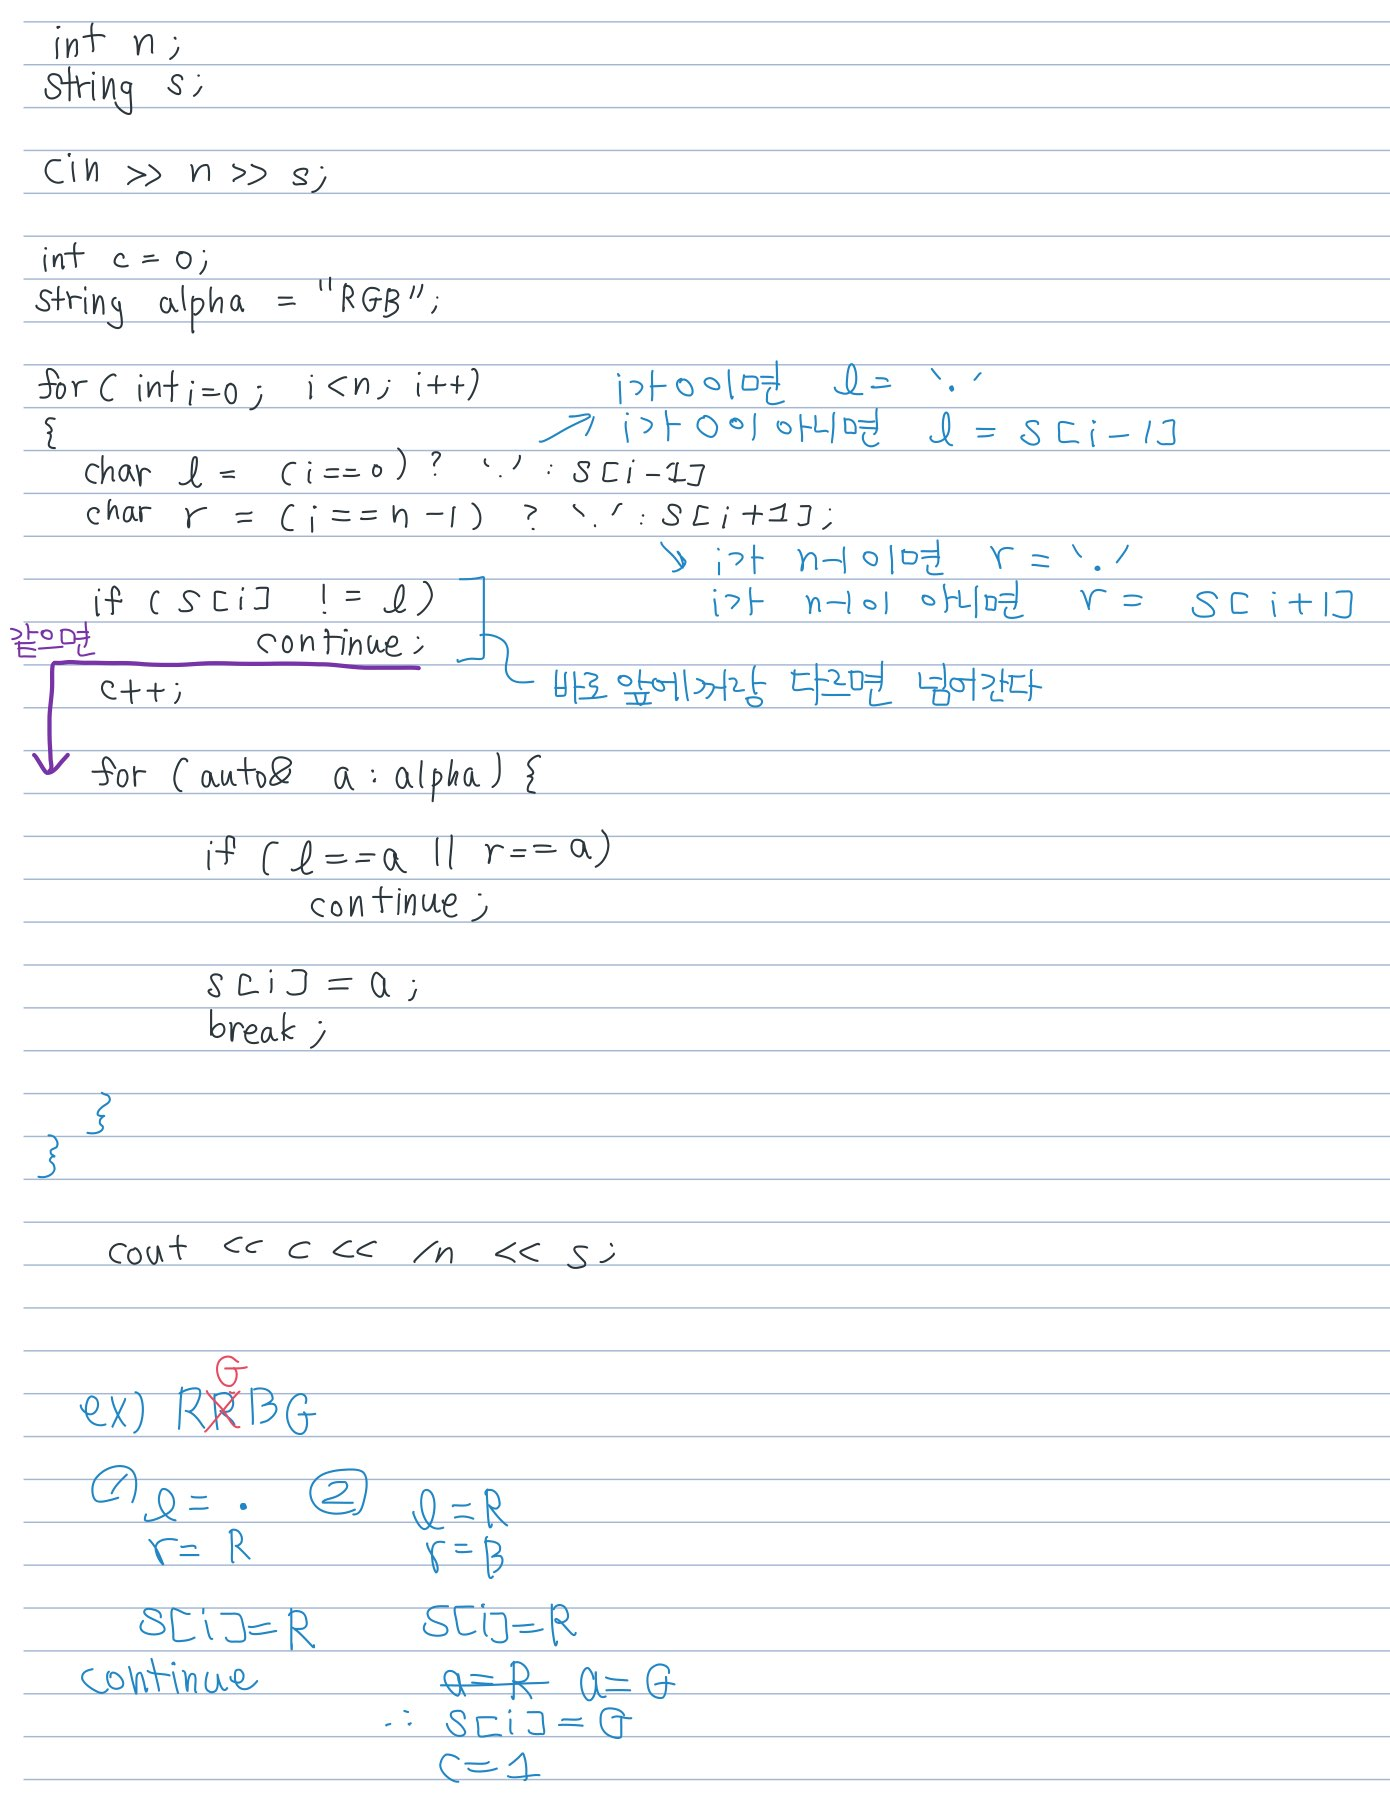 int n;
string s;
cin >> n >> s;
int c = 0;
string alpha = "RGB";
for( int i=0; i<n; i++)
i가 0이면 l = '.'
{
i가 0이 아니면 l = S[i-1]
char l = (i==0) ? '.' : S[i-1]
char r = (i==n-1) ? '.' : S[i+1];
i가 n-1이면 r = '.'
i가 n-1이 아니면 r = S[i+1]
if (S[i] != l)
continue;
같으면
바로 앞에꺼랑 다르면 넘어간다
c++;
for (auto& a : alpha) {
if (l==a || r==a)
continue;
s[i] = a;
break;
}
}
cout << c << /n << s;
G
ex) RRBG
① l = .
r = R
S[i]=R
continue
② l=R
r=B
S[i]=R
a=R a=G
∴ S[i]=G
c=1